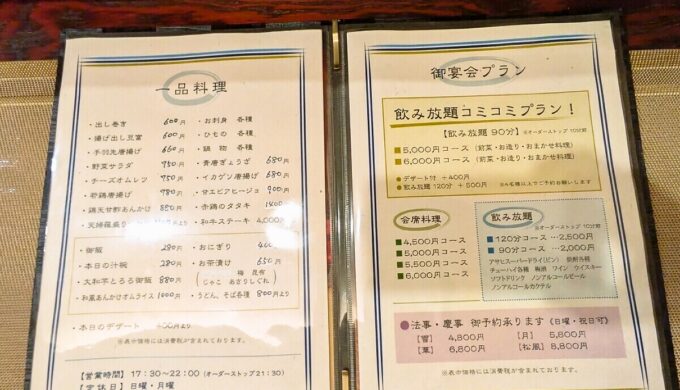 一品料理
・出し巻き 600円
・揚げ出し豆富 600円
・手羽先唐揚げ 660円
・野菜サラダ 750円
・チーズオムレツ 750円
・若鶏唐揚げ 780円
・鶏天甘酢あんかけ 880円
・天婦羅盛り
・お刺身 各種
・ひもの 各種
・鍋物 各種
・青唐ぎょうざ 680円
・イカゲソ唐揚げ 680円
・甘エビアヒージョ 900円
・赤鶏のタタキ 1400円
・和牛ステーキ 4,000円
・御飯 280円
・本日の汁椀 380円
・大和芋とろろ御飯 880円
・和風あんかけオムライス 1000円
・おにぎり 400円
・お茶漬け 650円
(梅 昆布
じゃこ あさりしぐれ)
・うどん、そば各種 800円より
・本日のデザート 400円より
※表中価格には消費税が含まれております。
【営業時間】17:30~22:00 (オーダーストップ21:30)
【定休日】日曜・月曜
御宴会プラン
飲み放題コミコミプラン!
【飲み放題 90分】 ※オーダーストップ 10分前
5,000円コース (前菜・お造り・おまかせ料理)
6,000円コース (前菜・お造り・おまかせ料理)
デザート付 +400円
飲み放題120分 +500円 ※4名様以上でご予約お願いします
会席料理
4,500円コース
5,000円コース
5,500円コース
6,000円コース
飲み放題
※オーダーストップ 10分前
120分コース …2,500円
90分コース …2,000円
アサヒスーパードライ(ビン) 焼酎各種
チューハイ各種 梅酒 ワイン ウイスキー
ソフトドリンク ノンアルコールビール
ノンアルコールカクテル
法事・慶事 御予約承ります (日曜・祝日可)
[雪] 4,800円 [月] 5,800円
[葉] 6,800円 [松風] 8,800円
※表の価格には消費税が含まれております。